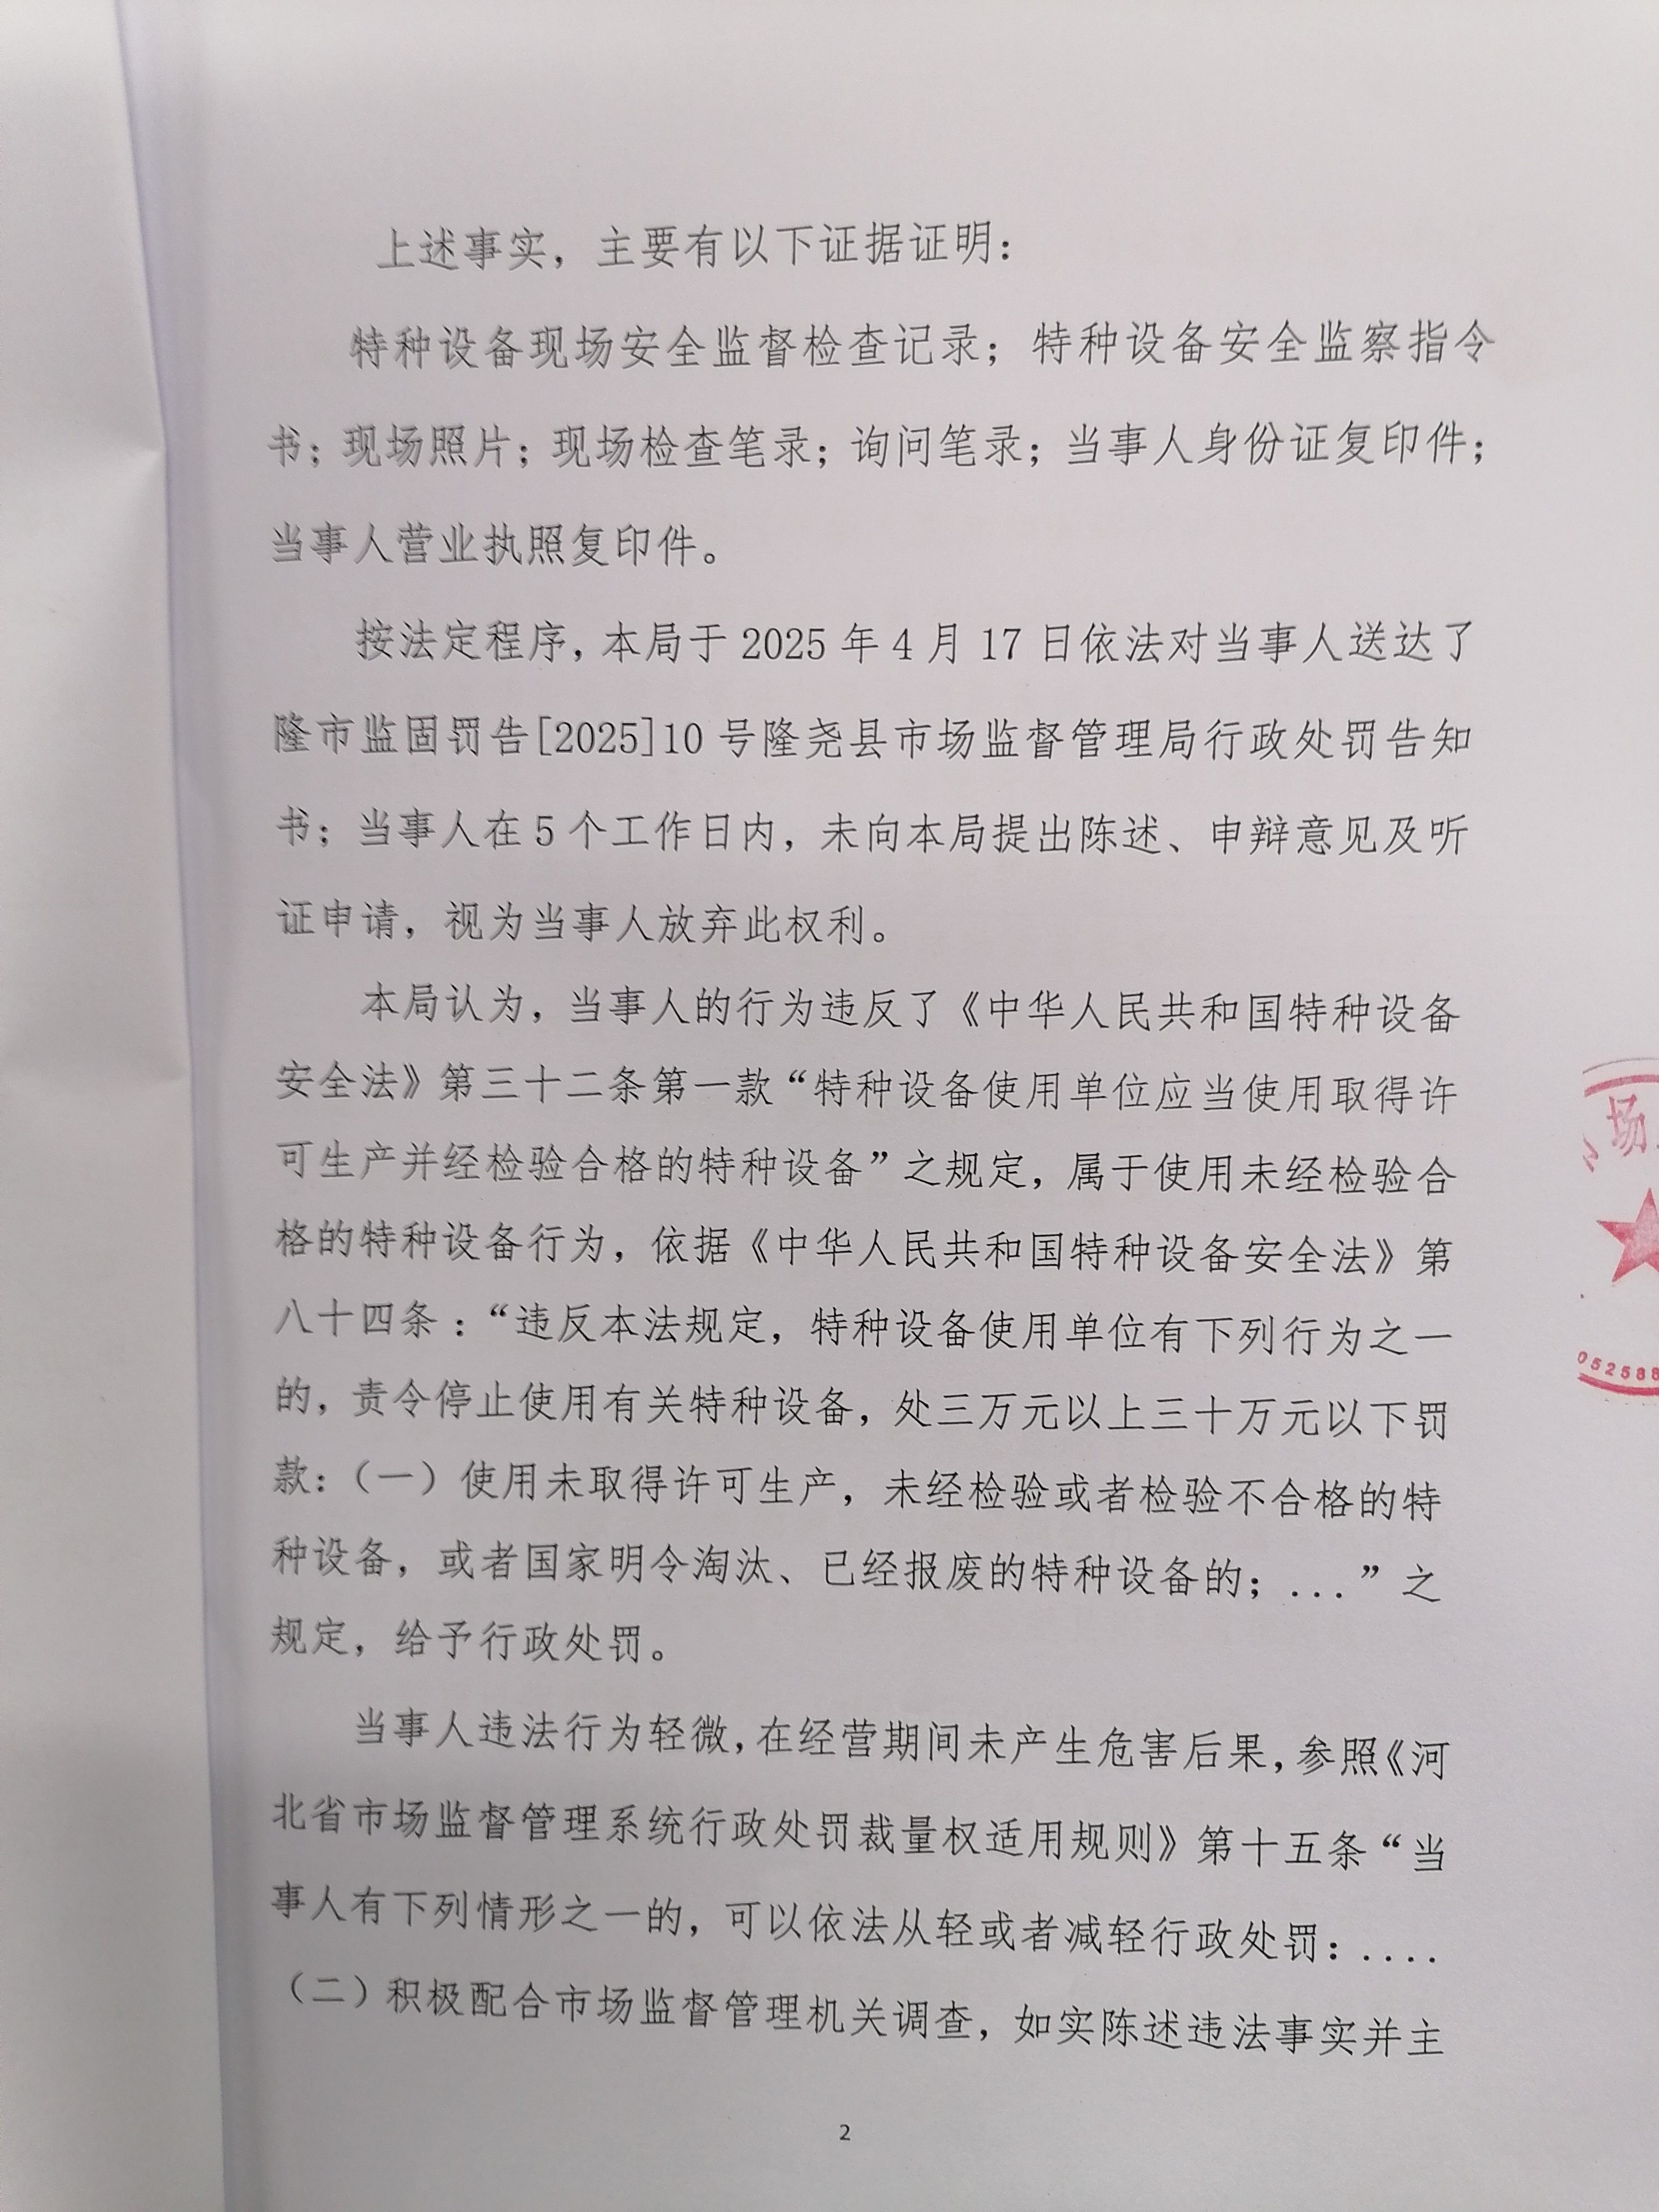 上述事实，主要有以下证据证明：
特种设备现场安全监督检查记录；特种设备安全监察指令
书；现场照片；现场检查笔录；询问笔录；当事人身份证复印件；
当事人营业执照复印件。
按法定程序，本局于 2025 年 4 月 17 日依法对当事人送达了
隆市监固罚告[2025]10 号隆尧县市场监督管理局行政处罚告知
书；当事人在 5 个工作日内，未向本局提出陈述、申辩意见及听
证申请，视为当事人放弃此权利。
本局认为，当事人的行为违反了《中华人民共和国特种设备
安全法》第三十二条第一款“特种设备使用单位应当使用取得许
可生产并经检验合格的特种设备”之规定，属于使用未经检验合
格的特种设备行为，依据《中华人民共和国特种设备安全法》第
八十四条：“违反本法规定，特种设备使用单位有下列行为之一
的，责令停止使用有关特种设备，处三万元以上三十万元以下罚
款：（一）使用未取得许可生产，未经检验或者检验不合格的特
种设备，或者国家明令淘汰、已经报废的特种设备的；...”之
规定，给予行政处罚。
当事人违法行为轻微，在经营期间未产生危害后果，参照《河
北省市场监督管理系统行政处罚裁量权适用规则》第十五条“当
事人有下列情形之一的，可以依法从轻或者减轻行政处罚：....
（二）积极配合市场监督管理机关调查，如实陈述违法事实并主
2
场
052588